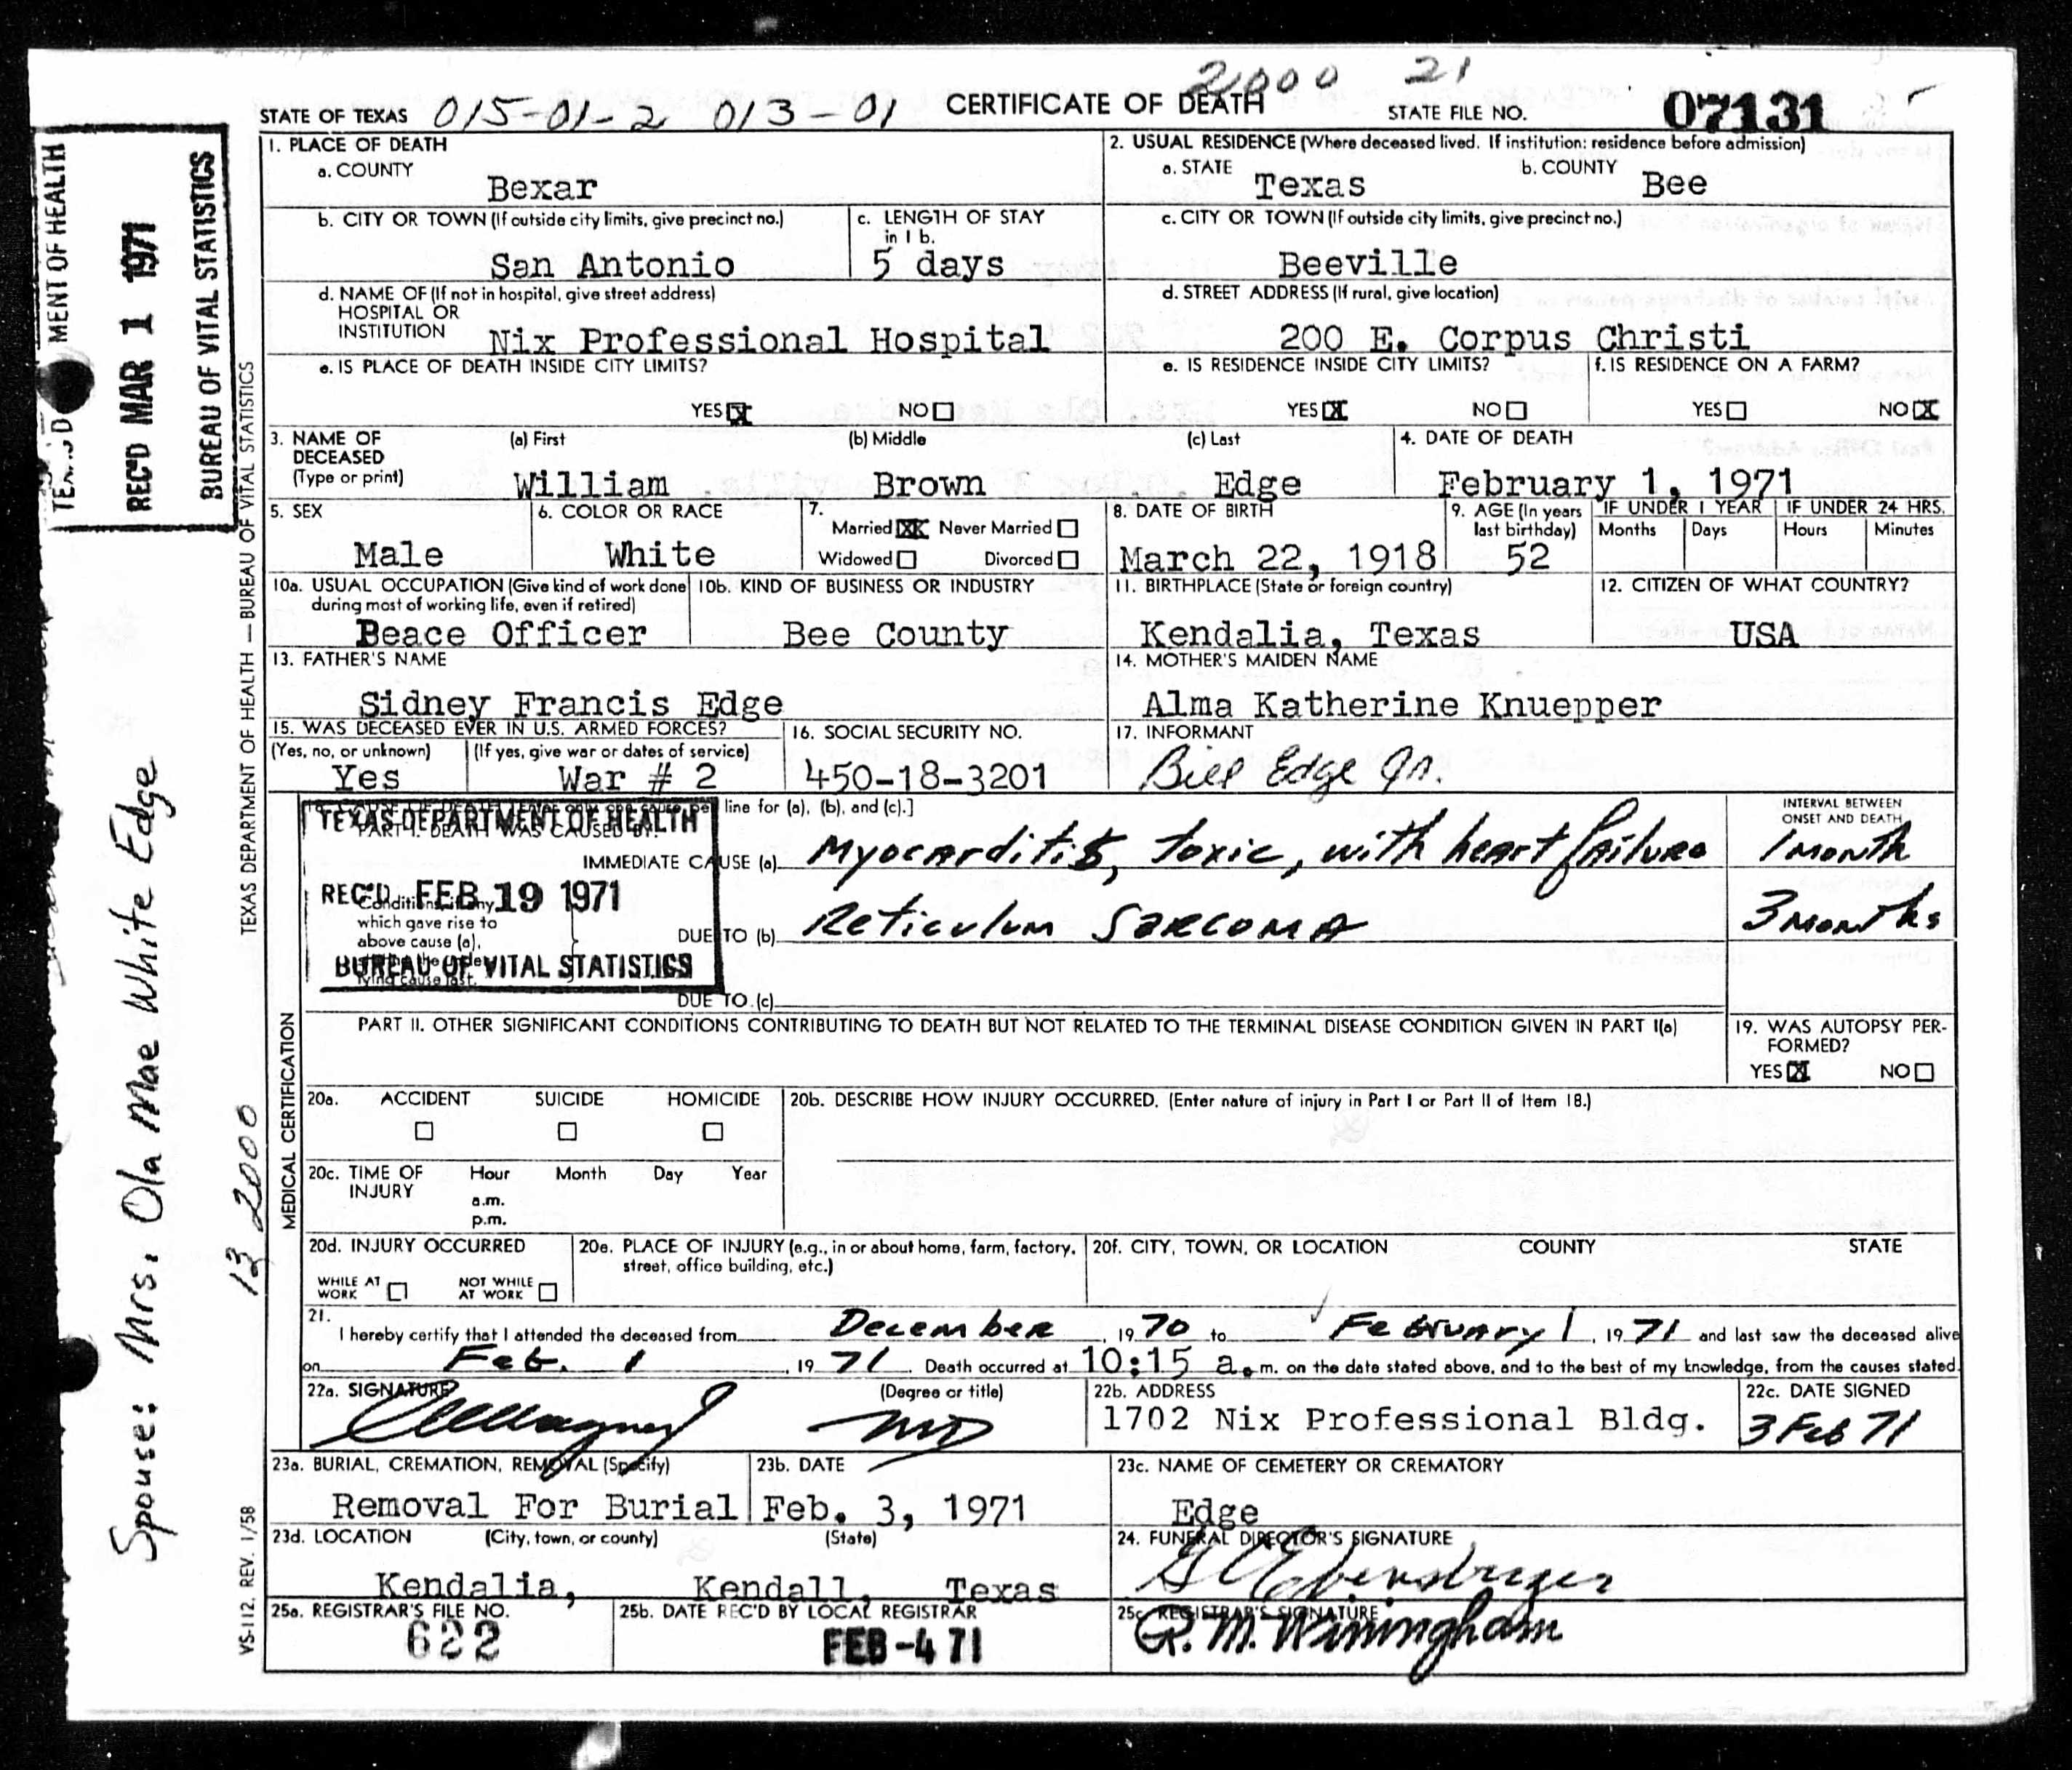 2,000 21
STATE OF TEXAS 015-01-2 013-01 CERTIFICATE OF DEATH STATE FILE NO. 07131
1. PLACE OF DEATH
a. COUNTY Bexar
b. CITY OR TOWN (If outside city limits, give precinct no.) San Antonio
c. LENGTH OF STAY in 1 b. 5 days
d. NAME OF (If not in hospital, give street address)
HOSPITAL OR
INSTITUTION Nix Professional Hospital
e. IS PLACE OF DEATH INSIDE CITY LIMITS?
YES X NO
2. USUAL RESIDENCE (Where deceased lived. If institution: residence before admission)
a. STATE Texas b. COUNTY Bee
c. CITY OR TOWN (If outside city limits, give precinct no.)
Beeville
d. STREET ADDRESS (If rural, give location)
200 E. Corpus Christi
e. IS RESIDENCE INSIDE CITY LIMITS? YES X NO
f. IS RESIDENCE ON A FARM? YES NO X
3. NAME OF DECEASED (Type or print)
(a) First William (b) Middle Brown (c) Last Edge
4. DATE OF DEATH
February 1, 1971
5. SEX Male
6. COLOR OR RACE White
7. Married XX Never Married
Widowed Divorced
8. DATE OF BIRTH
March 22, 1918
9. AGE (In years last birthday) 52
IF UNDER 1 YEAR Months Days
IF UNDER 24 HRS. Hours Minutes
10a. USUAL OCCUPATION (Give kind of work done during most of working life, even if retired)
Peace Officer
10b. KIND OF BUSINESS OR INDUSTRY
Bee County
11. BIRTHPLACE (State or foreign country)
Kendalia, Texas
12. CITIZEN OF WHAT COUNTRY?
USA
13. FATHER'S NAME
Sidney Francis Edge
14. MOTHER'S MAIDEN NAME
Alma Katherine Knuepper
15. WAS DECEASED EVER IN U.S. ARMED FORCES?
(Yes, no, or unknown) Yes
(If yes, give war or dates of service) War # 2
16. SOCIAL SECURITY NO.
450-18-3201
17. INFORMANT
Bill Edge Jr.
18. CAUSE OF DEATH [Enter only one cause per line for (a), (b), and (c).]
PART I. DEATH WAS CAUSED BY:
IMMEDIATE CAUSE (a) Myocarditis, toxic, with heart failure
Conditions, if any, which gave rise to above cause (a), stating the underlying cause last.
DUE TO (b) Reticulum Sarcoma
DUE TO (c)
INTERVAL BETWEEN ONSET AND DEATH
1 month
3 months
TEXAS DEPARTMENT OF HEALTH
REC'D FEB 19 1971
BUREAU OF VITAL STATISTICS
PART II. OTHER SIGNIFICANT CONDITIONS CONTRIBUTING TO DEATH BUT NOT RELATED TO THE TERMINAL DISEASE CONDITION GIVEN IN PART I(a)
19. WAS AUTOPSY PERFORMED?
YES X NO
20a. ACCIDENT SUICIDE HOMICIDE
20b. DESCRIBE HOW INJURY OCCURRED. (Enter nature of injury in Part I or Part II of Item 18.)
20c. TIME OF INJURY Hour Month Day Year
a.m.
p.m.
20d. INJURY OCCURRED
WHILE AT WORK NOT WHILE AT WORK
20e. PLACE OF INJURY (e.g., in or about home, farm, factory, street, office building, etc.)
20f. CITY, TOWN, OR LOCATION COUNTY STATE
21. I hereby certify that I attended the deceased from December, 1970 to February 1, 1971 and last saw the deceased alive
on Feb. 1, 1971. Death occurred at 10:15 a.m. on the date stated above, and to the best of my knowledge, from the causes stated.
22a. SIGNATURE (Degree or title)
MD
22b. ADDRESS
1702 Nix Professional Bldg.
22c. DATE SIGNED
3 Feb 71
23a. BURIAL, CREMATION, REMOVAL (Specify)
Removal For Burial
23b. DATE
Feb. 3, 1971
23c. NAME OF CEMETERY OR CREMATORY
Edge
23d. LOCATION (City, town, or county) (State)
Kendalia, Kendall, Texas
24. FUNERAL DIRECTOR'S SIGNATURE
25a. REGISTRAR'S FILE NO.
622
25b. DATE REC'D BY LOCAL REGISTRAR
FEB -4 71
25c. REGISTRAR'S SIGNATURE
MEDICAL CERTIFICATION
TEXAS DEPARTMENT OF HEALTH — BUREAU OF VITAL STATISTICS
VS-112, REV. 1/58
MENT OF HEALTH
REC'D MAR 1 1971
BUREAU OF VITAL STATISTICS
13 2000
Spouse: Mrs. Ola Mae White Edge